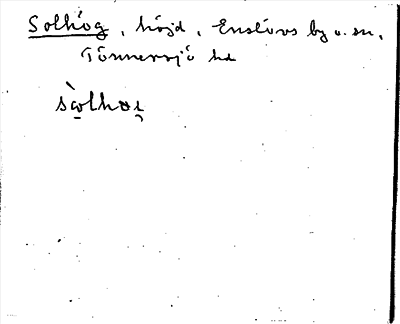 Solhög, höjd, Enslövs by o. sn,
Tönnersjö hd
sòlhoi̯